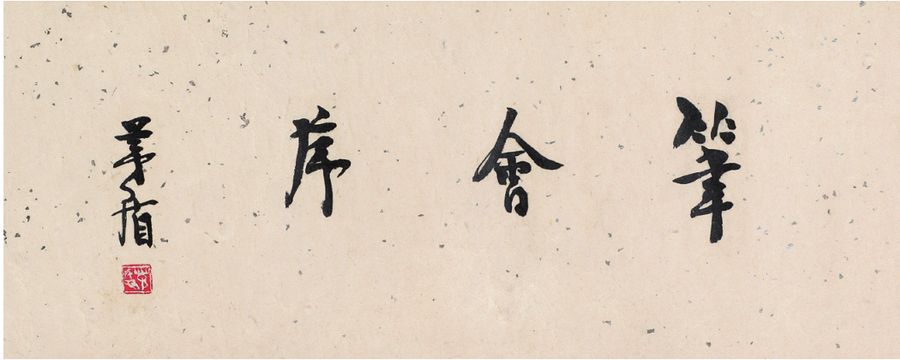 筆會
茅盾